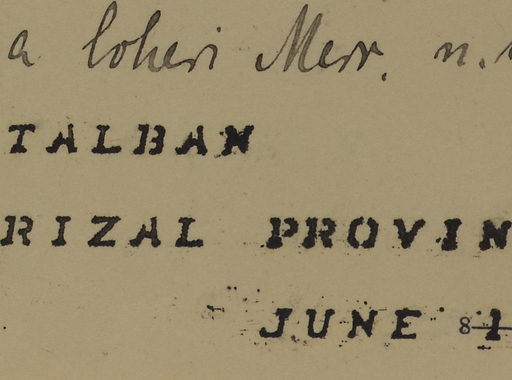 a loheri Merr. n.
TALBAN
RIZAL PROVIN
JUNE 81